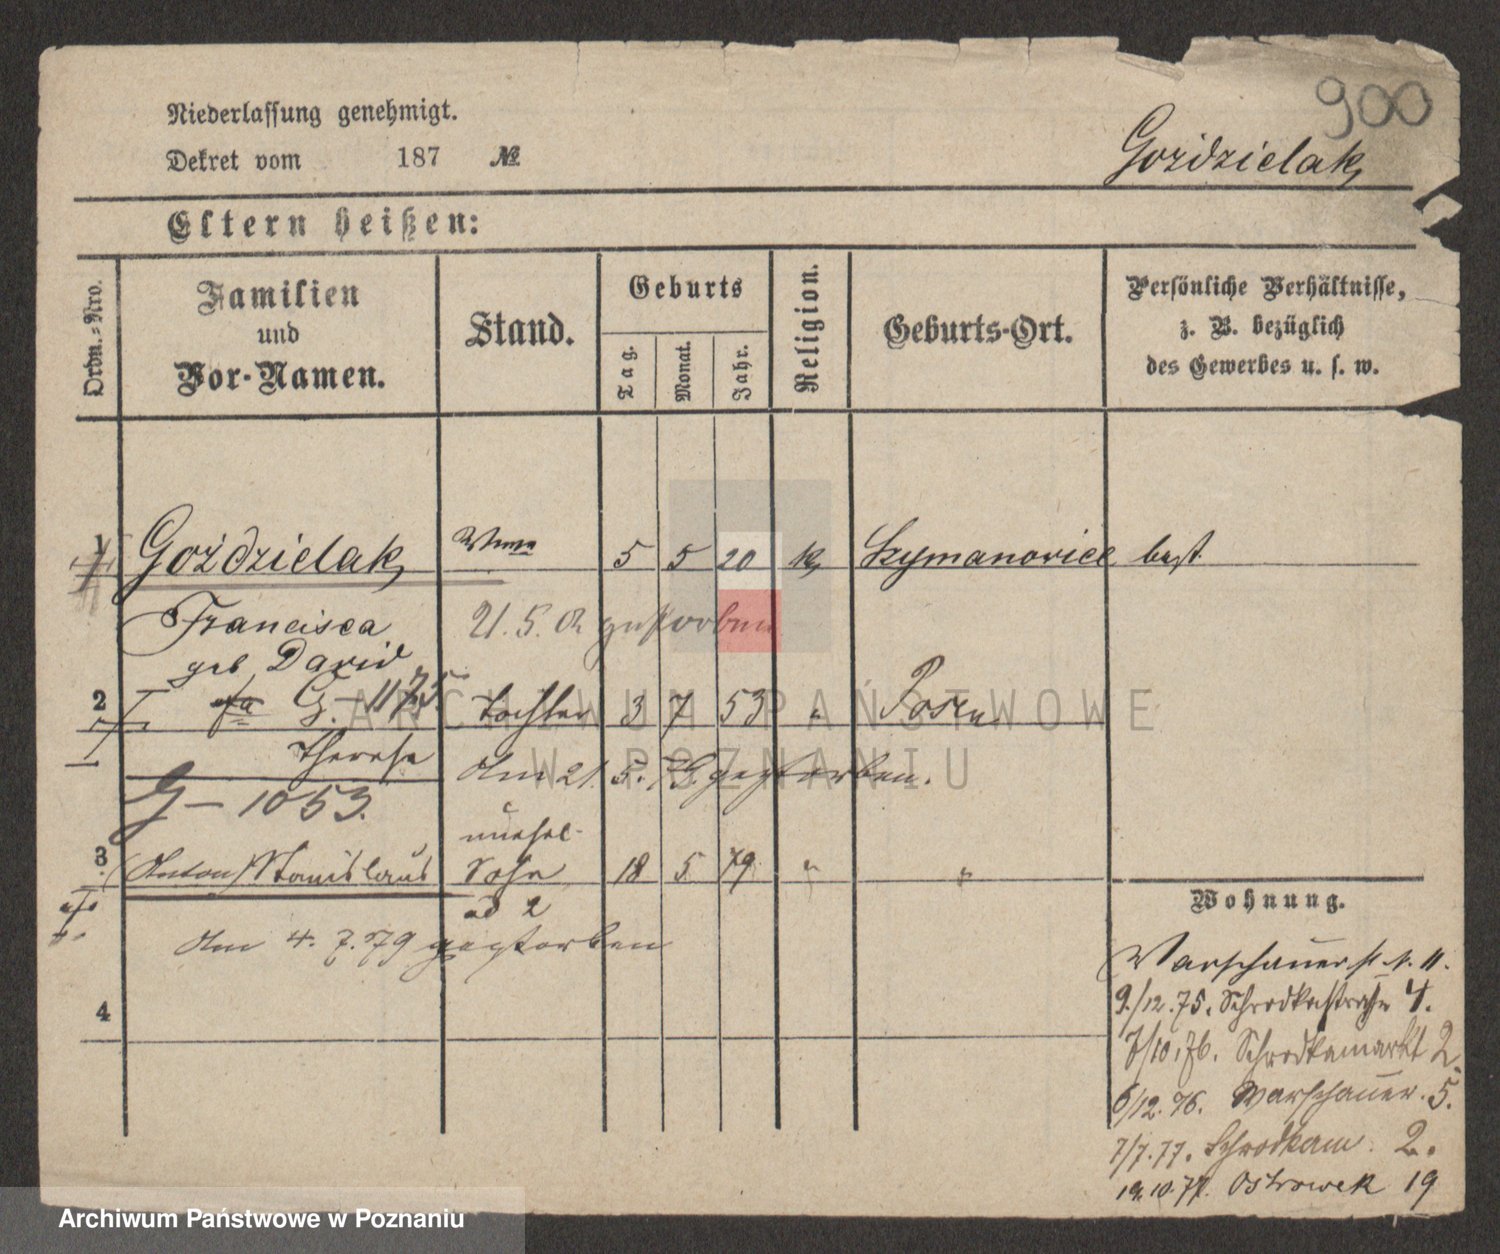 900
Niederlassung genehmigt.
Dekret vom 187 №
Goździelak
Eltern heißen:
Ordn.-Nro.
Familien und Vor-Namen.
Stand.
Geburts
Tag.
Monat.
Jahr.
Religion.
Geburts-Ort.
Persönliche Verhältnisse,
z. B. bezüglich
des Gewerbes u. s. w.
1 Goździelak Wwe 5 5 20 k Szymanowice
Francisca 21. 5. gestorben
geb David
2 G. - 1175. Tochter 3 7 53 " Posen
Therese Am 21. 5. 79 gestorben.
G - 1053.
unehel-
3 (Anton) Stanislaus Sohn 18 5 79 " "
ad 2
Am 4. 7. 79 gestorben
4
Wohnung.
Warschauerstr. 11.
9/12. 75. Schrodkastraße 4.
7/10. 76. Schrodkamarkt 2.
6/12. 76. Warschauer. 5.
7/7. 77. Schrodkam. 2.
19. 10. 77. Ostrowek 19
ARCHIWUM PAŃSTWOWE
W POZNANIU
Archiwum Państwowe w Poznaniu